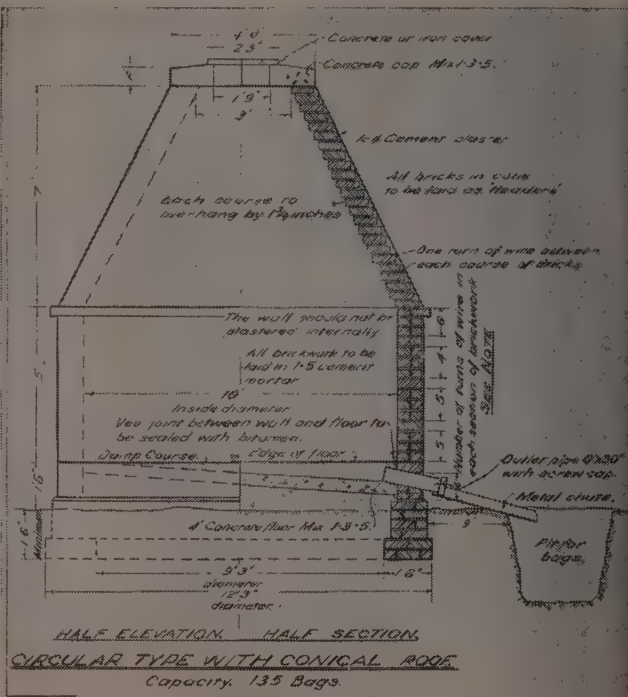 4' 4"
2' 3"
Concrete or iron cover
Concrete cap Mix 1·3·5.
1' 9"
3'
1·6 Cement plaster
All bricks in cone
to be laid as 'Headers'
Each course to
overhang by 1¾ inches
7'
One turn of wire between
each course of bricks
The wall should not be
plastered internally
All brickwork to be
laid in 1·5 cement
mortar
10'
Inside diameter
Vee joint between wall and floor to
be sealed with bitumen.
Damp Course.
Edge of floor
5'
6
4
5
5
Number of turns of wire in
each section of brickwork
SEE NOTE
Outlet pipe
with screw cap.
Metal chute.
1' 6"
1' 6"
Minimum
4" Concrete floor Mix 1·3·5.
9'
Pit for
bags.
9' 3"
diameter
1' 6"
12' 3"
diameter.
HALF ELEVATION. HALF SECTION.
CIRCULAR TYPE WITH CONICAL ROOF.
Capacity. 135 Bags.